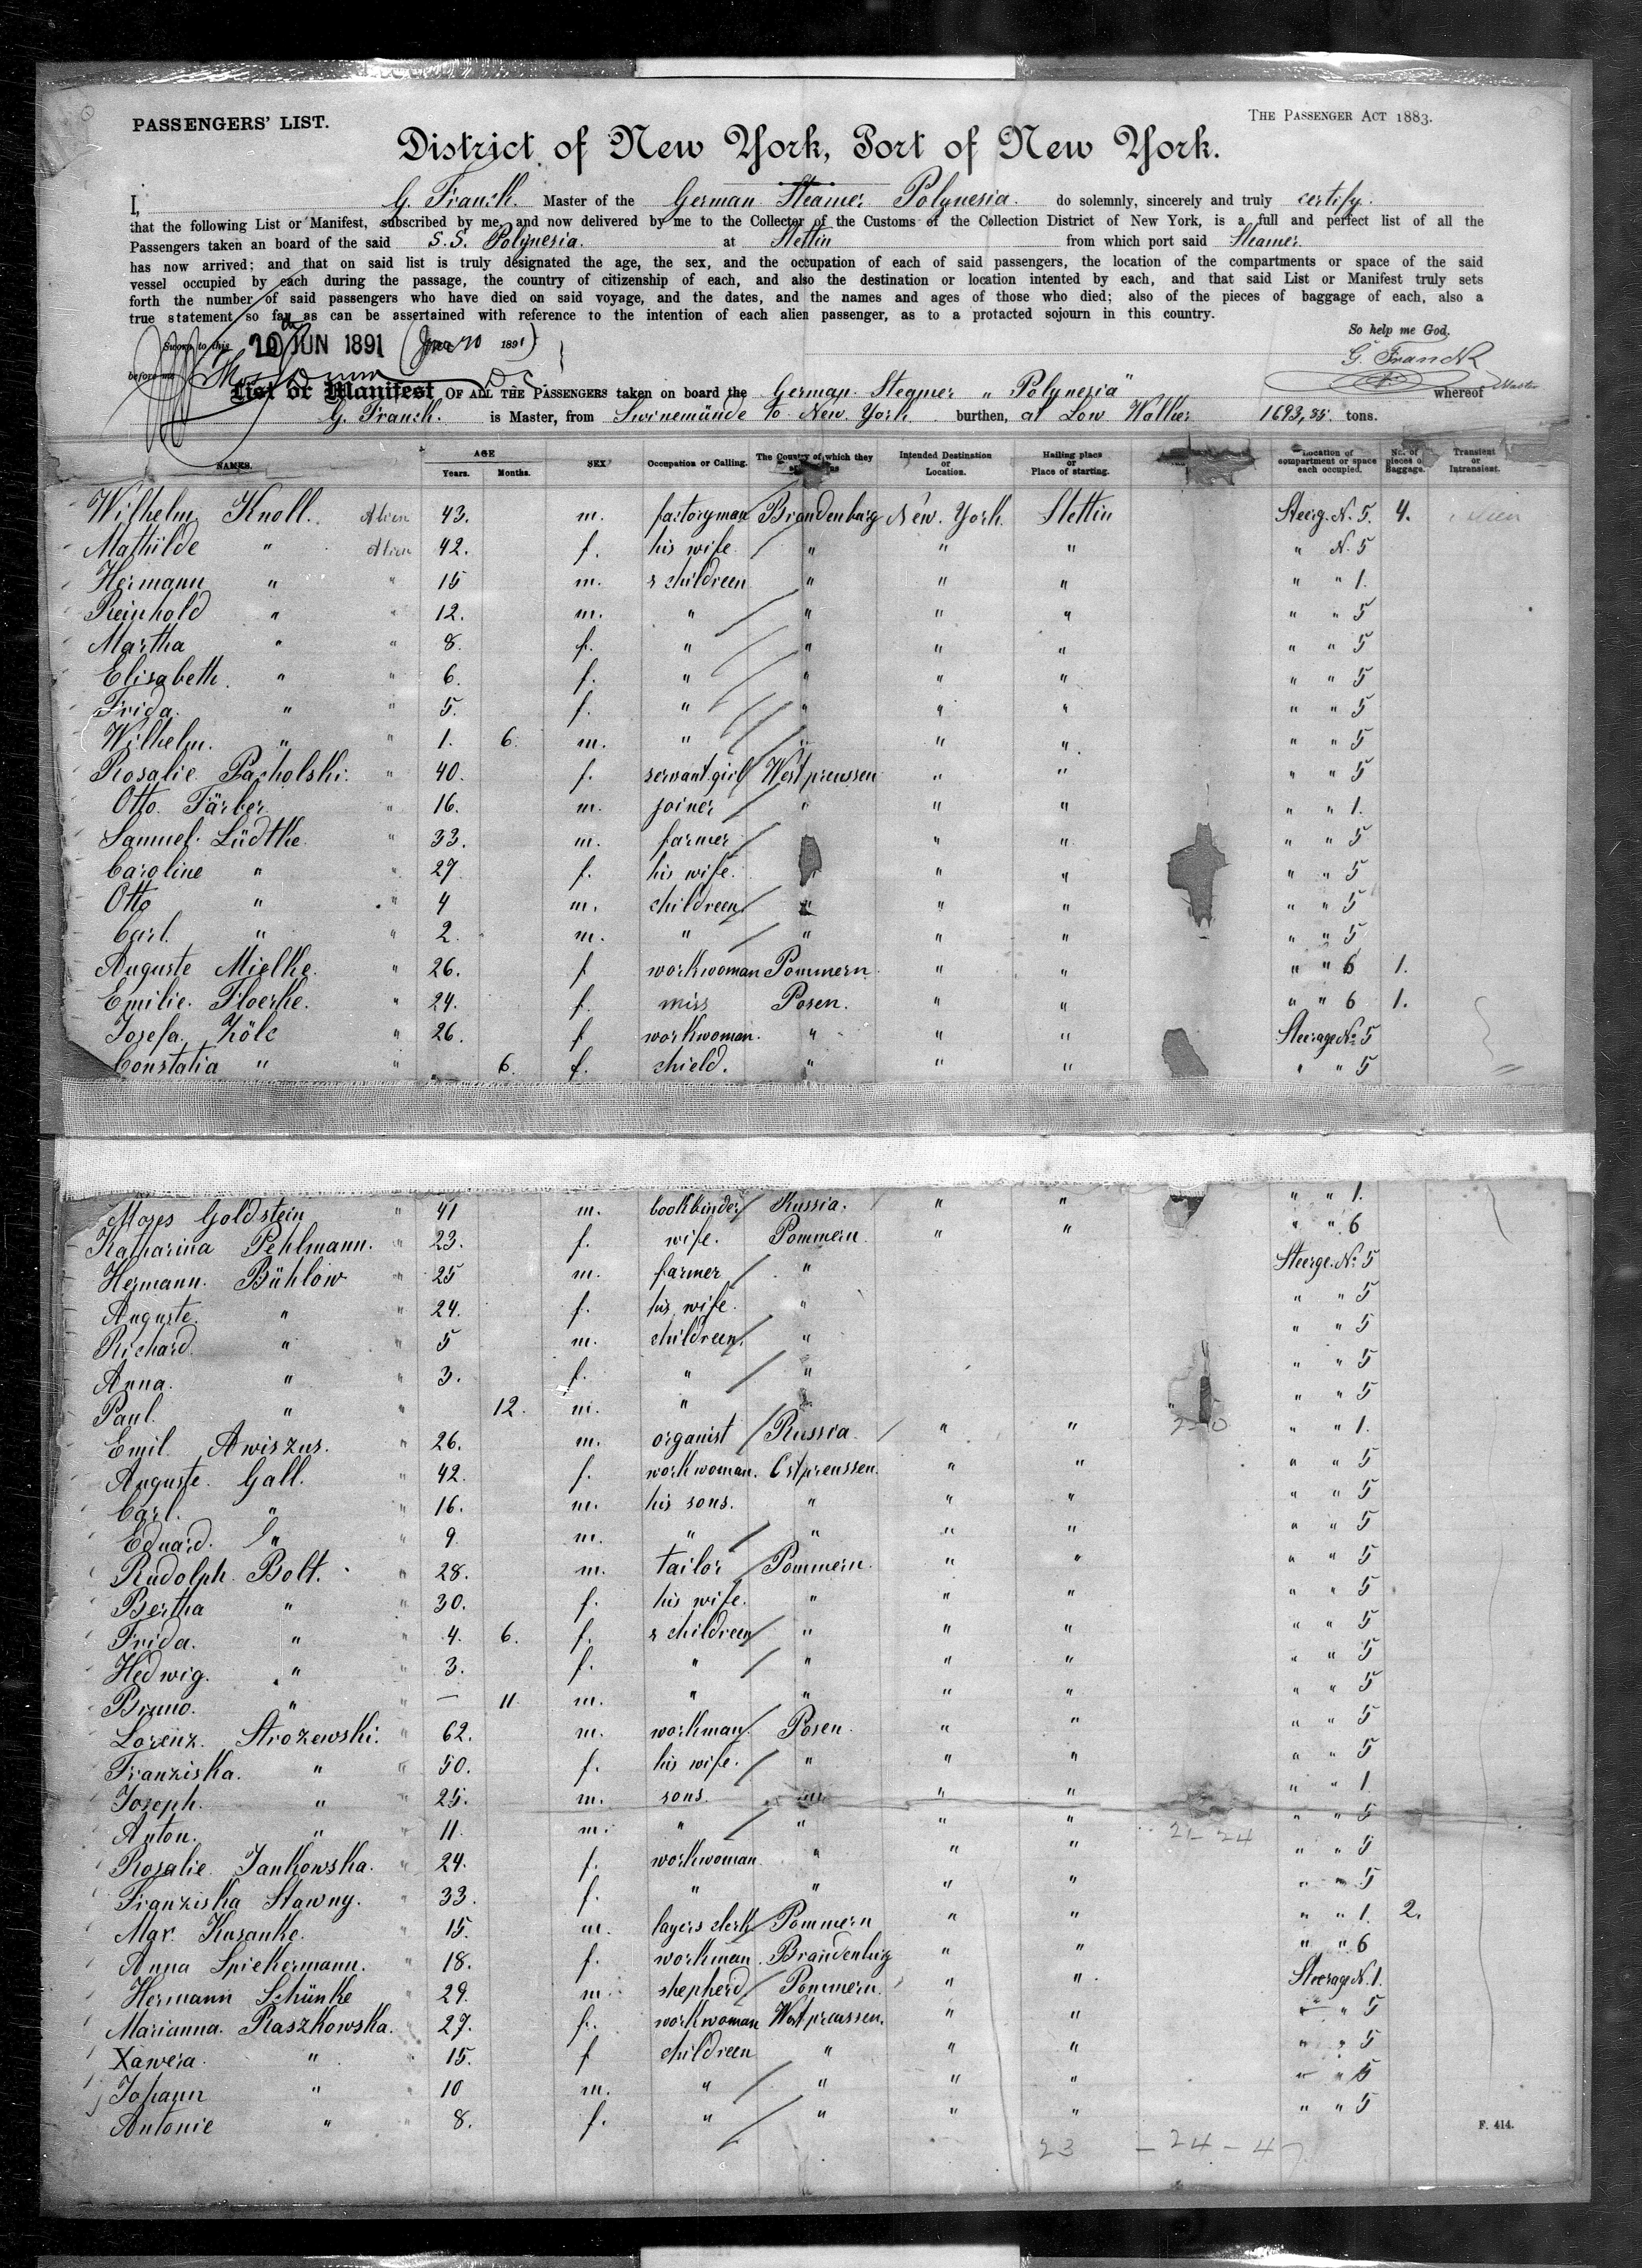 PASSENGERS' LIST.
THE PASSENGER ACT 1883.
District of New York, Port of New York.
I, G. Franck Master of the German Steamer Polynesia do solemnly, sincerely and truly certify.
that the following List or Manifest, subscribed by me, and now delivered by me to the Collector of the Customs of the Collection District of New York, is a full and perfect list of all the
Passengers taken an board of the said S.S. Polynesia. at Stettin from which port said Steamer
has now arrived; and that on said list is truly designated the age, the sex, and the occupation of each of said passengers, the location of the compartments or space of the said
vessel occupied by each during the passage, the country of citizenship of each, and also the destination or location intented by each, and that said List or Manifest truly sets
forth the number of said passengers who have died on said voyage, and the dates, and the names and ages of those who died; also of the pieces of baggage of each, also a
true statement so far as can be assertained with reference to the intention of each alien passenger, as to a protacted sojourn in this country.
So help me God,
Sworn to this 20 JUN 1891 (June 20 1891)
G. Franck
before me
Master
List or Manifest OF ALL THE PASSENGERS taken on board the German Steamer "Polynesia" whereof
G. Franck. is Master, from Swinemünde to New York burthen, at Low Walker 1693,35 tons.
NAMES. AGE Years. Months. SEX Occupation or Calling. The Country of which they Intended Destination or Location. Hailing place or Place of starting. Location of compartment or space each occupied. No. of pieces of Baggage. Transient or Intransient.
Wilhelm Knoll. Alien 43. m. factoryman Brandenburg New York. Stettin Steerg. N. 5. 4.
Mathilde " Alien 42. f. his wife " " " " N. 5
Hermann " " 15 m. s childreen " " " " " 1.
Reinhold " " 12. m. " " " " " " 5
Martha " " 8. f. " " " " " " 5
Elisabeth. " " 6. f. " " " " " " 5
Frida. " " 5. f. " " " " " " 5
Wilhelm. " " 1. 6. m. " " " " " " 5
Rosalie Pacholski. " 40. f. servant girl Westpreussen " " " " 5
Otto Färber " 16. m. joiner " " " " " 1.
Samuel Lüdtke " 33. m. farmer " " " " 5
Caroline " " 27 f. his wife. " " " " 5
Otto " " 4 m. childreen " " " " " 5
Carl. " " 2. m. " " " " " " 5
Auguste Mielke. " 26. f workwoman Pommern. " " " " 6 1.
Emilie. Floerke. " 24. f. miss Posen. " " " " 6 1.
Josefa Kölc " 26. f workwoman. " " " Steerage No 5
Constatia " " " 6. f. chield. " " " " " 5
Moses Goldstein " 41 m. bookbinder Russia. " " " " 1.
Katharina Pehlmann. " 23. f. wife. Pommern " " " " 6
Hermann. Bühlow " 25 m. farmer " Steerge. No 5
Auguste. " " 24. f. his wife. " " " 5
Richard " " 5 m. childreen. " " " 5
Anna. " " 3. f. " " " " 5
Paul. " " 12. m. " " " " 5
Emil. Awiszus. " 26. m. organist Russia. " " " " 1.
Auguste. Gall. " 42. f. workwoman. Ostpreussen. " " " " 5
Carl. " " 16. m. his sons. " " " " " 5
Eduard. " " 9. m. " " " " " " 5
Rudolph. Bolt. " 28. m. tailor Pommern. " " " " 5
Bertha " " 30. f. his wife. " " " " " 5
Frida. " " 4. 6. f. s childreen " " " " " 5
Hedwig. " " 3. f. " " " " " " 5
Bruno. " " — 11. m. " " " " " " 5
Lorenz. Strozewski. " 62. m. workman. Posen. " " " " 5
Franziska. " " 50. f. his wife. " " " " " 5
Joseph. " " 25. m. sons. " " " " 1.
Anton. " " 11 m. " " " " " " 5
21 - 24
Rosalie Jankowska. " 24. f. workwoman " " " " " 5
Franziska Stawny. " 33. f. " " " " " " 5
Max Kusanke. " 15. m. layers clerk Pommern " " " " 1. 2.
Anna Spiekermann. " 18. f. workman. Brandenburg " " " " 6
Hermann Schünke " 29. m. shepherd Pommern. " " Steerage N. 1.
Marianna. Raszkowska. " 27. f. workwoman Westpreussen. " " " " 5
Xawera. " " 15. f childreen " " " " " 5
Johann " " 10 m. " " " " " " 5
Antonie " " 8. f. " " " " " " 5
F. 414.
23 - 24 - 47